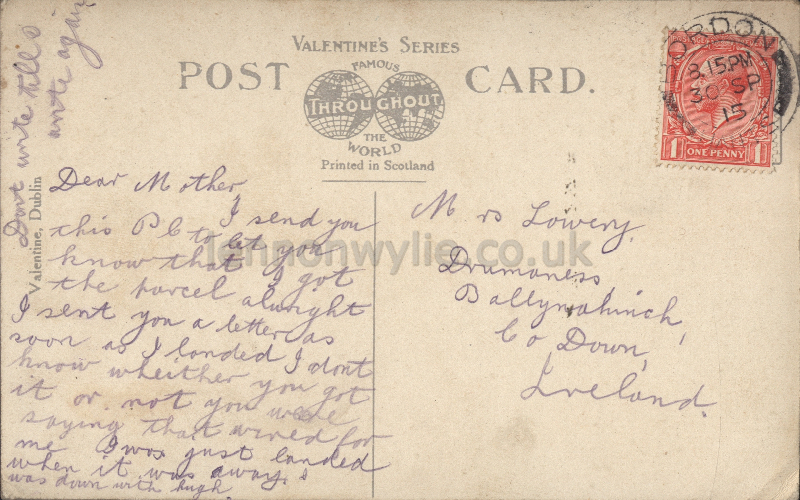 Dont write till I
write again
VALENTINE'S SERIES
POST CARD.
FAMOUS
THROUGHOUT
THE
WORLD
Printed in Scotland
Valentine, Dublin
BORDON
8.15PM
30 SP
15
1 ONE PENNY 1
Dear Mother,
I send you
this P C to let you
know that I got
the parcel alwright
I sent you a letter as
soon as I landed I dont
know wheither you got
it or not you were
saying that wired for
me I was just landed
when it was away. I
was down with hugh
Mrs Lowery.
Drumaness,
Ballynahinch,
Co Down,
Ireland.
lennonwylie.co.uk